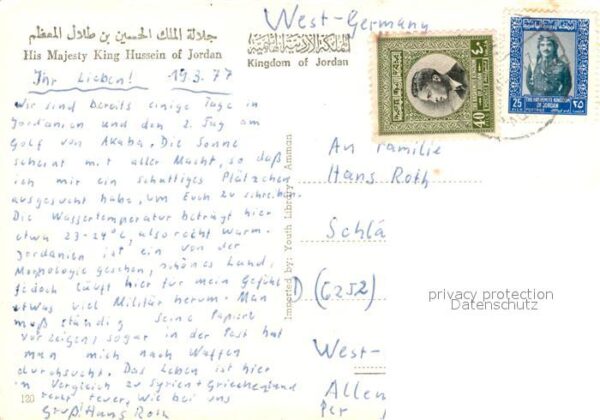 West-Germany
جلالة الملك الحسين بن طلال المعظم
His Majesty King Hussein of Jordan
المملكة الاردنية الهاشمية
Kingdom of Jordan
Ihr Lieben! 19.3.77
Wir sind bereits einige Tage in
Jordanien und den 2. Tag am
Golf von Akaba. Die Sonne
scheint mit aller Macht, so daß
ich mir ein schattiges Plätzchen
ausgesucht habe, um Euch zu schreiben.
Die Wassertemperatur beträgt hier
etwa 23-24°C, also recht warm.
Jordanien ist ein von der
Morphologie gesehen, schönes Land,
jedoch läuft hier für mein Gefühl
etwas viel Militär herum. Man
muß ständig seine Papiere
vorzeigen, sogar in der Post hat
man mich nach Waffen
durchsucht. Das Leben ist hier
im Vergleich zu Syrien + Griechenland
recht teuer, wie bei uns
Gruß, Hans Roth
120
Imported by: Youth Library, Amman
40
25
٢٥
THE HASHEMITE KINGDOM
OF JORDAN
An Familie
Hans Roth
Schlä
D (6252)
West-
Allen
Per
privacy protection
Datenschutz